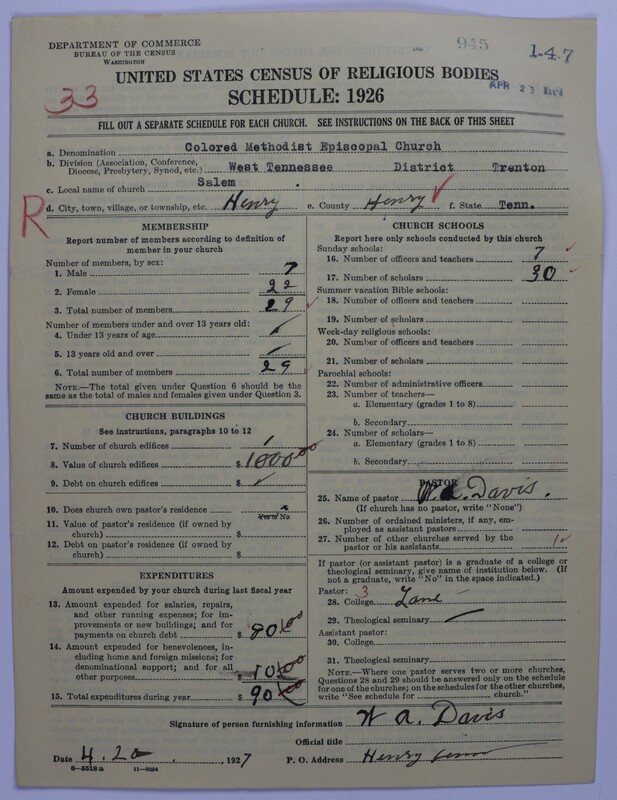 DEPARTMENT OF COMMERCE
BUREAU OF THE CENSUS
WASHINGTON
945
1-4-7
UNITED STATES CENSUS OF RELIGIOUS BODIES
APR 23
33
SCHEDULE: 1926
FILL OUT A SEPARATE SCHEDULE FOR EACH CHURCH. SEE INSTRUCTIONS ON THE BACK OF THIS SHEET
a. Denomination Colored Methodist Episcopal Church
b. Division (Association, Conference, Diocese, Presbytery, Synod, etc.) West Tennessee District Trenton
c. Local name of church Salem
R
d. City, town, village, or township, etc. Henry e. County Henry f. State Tenn.
MEMBERSHIP
Report number of members according to definition of
member in your church
Number of members, by sex:
1. Male 7
2. Female 22
3. Total number of members 29
Number of members under and over 13 years old:
4. Under 13 years of age
5. 13 years old and over
6. Total number of members 29
NOTE.—The total given under Question 6 should be the
same as the total of males and females given under Question 3.
CHURCH BUILDINGS
See instructions, paragraphs 10 to 12
7. Number of church edifices 1
8. Value of church edifices $ 1000.00
9. Debt on church edifices $
10. Does church own pastor's residence
Yes or No
11. Value of pastor's residence (if owned by
church) $
12. Debt on pastor's residence (if owned by
church) $
EXPENDITURES
Amount expended by your church during last fiscal year
13. Amount expended for salaries, repairs,
and other running expenses; for im-
provements or new buildings; and for
payments on church debt $ 80.00
14. Amount expended for benevolences, in-
cluding home and foreign missions; for
denominational support; and for all
other purposes $ 10.00
15. Total expenditures during year $ 90.00
CHURCH SCHOOLS
Report here only schools conducted by this church
Sunday schools:
16. Number of officers and teachers 7
17. Number of scholars 30
Summer vacation Bible schools:
18. Number of officers and teachers
19. Number of scholars
Week-day religious schools:
20. Number of officers and teachers
21. Number of scholars
Parochial schools:
22. Number of administrative officers
23. Number of teachers—
a. Elementary (grades 1 to 8)
b. Secondary
24. Number of scholars—
a. Elementary (grades 1 to 8)
b. Secondary
PASTOR
25. Name of pastor W. A. Davis.
(If church has no pastor, write "None")
26. Number of ordained ministers, if any, em-
ployed as assistant pastors
27. Number of other churches served by the
pastor or his assistants 1
If pastor (or assistant pastor) is a graduate of a college or
theological seminary, give name of institution below. (If
not a graduate, write "No" in the space indicated.)
Pastor: 3
28. College Lane
29. Theological seminary
Assistant pastor:
30. College
31. Theological seminary
NOTE.—Where one pastor serves two or more churches,
Questions 28 and 29 should be answered only on the schedule
for one of the churches; on the schedules for the other churches,
write "See schedule for church."
Signature of person furnishing information W A. Davis
Official title
Date 4.20, 1927 P. O. Address Henry Tenn
8-5518 a 11-9034